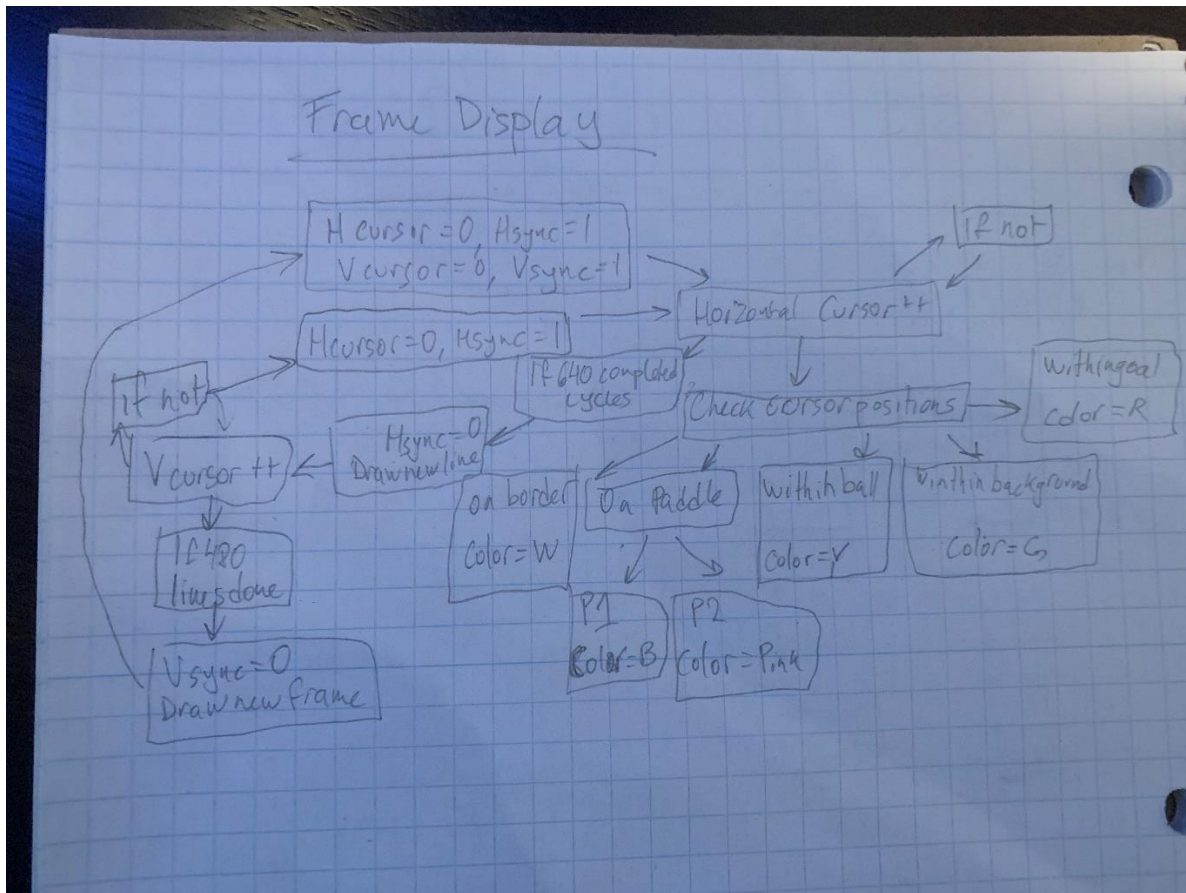 Frame Display
H cursor=0, Hsync=1
V cursor=0, Vsync=1
if not
Horizontal Cursor++
Hcursor=0, Hsync=1
If 640 completed
cycles
Withingoal
color=R
if not
Check cursor positions
Hsync=0
Draw new line
V cursor++
On border
Color=W
On Paddle
Within ball
Color=Y
Winthin background
Color=G
If 480
lines done
P1
Color=B
P2
Color=Pink
Vsync=0
Draw new frame